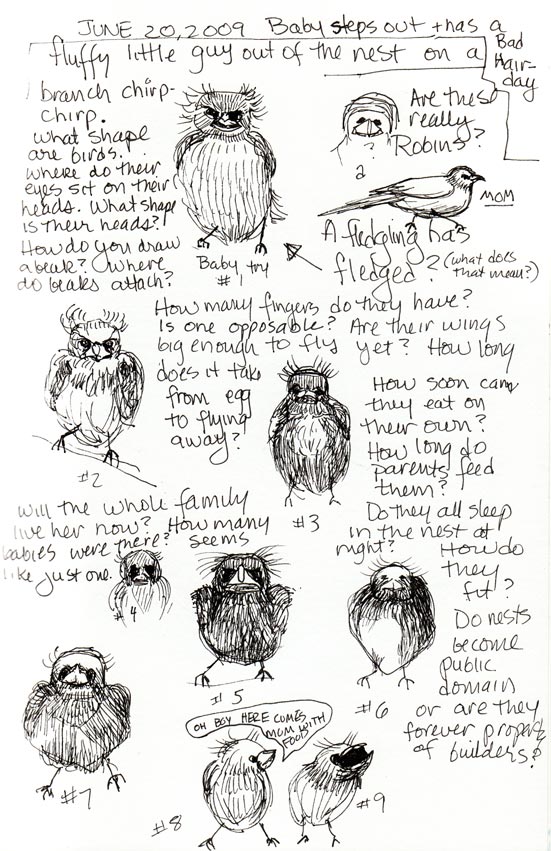 JUNE 20, 2009 Baby steps out + has a
Bad
Hair-
day
fluffy little guy out of the nest on a
branch chirp-
chirp.
What shape
are birds.
Where do their
eyes sit on their
heads. What shape
is their heads?
How do you draw
a beak? Where
do beaks attach?
Baby, try
#1
Are these
really
Robins?
?
2
MOM
A fledgling has
fledged? (what does
that mean?)
How many fingers do they have?
Is one opposable? Are their wings
big enough to fly yet? How long
does it take
from egg
to flying
away?
#2
#3
How soon can
they eat on
their own?
How long do
parents feed
them?
Do they all sleep
in the nest at
night? How do
they
fit?
Will the whole family
live her now? How many
babies were there? Seems
like just one.
#4
#5
#6
Do nests
become
public
domain
or are they
forever property
of builders?
#7
OH BOY HERE COMES
MOM WITH
FOOD
#8
#9